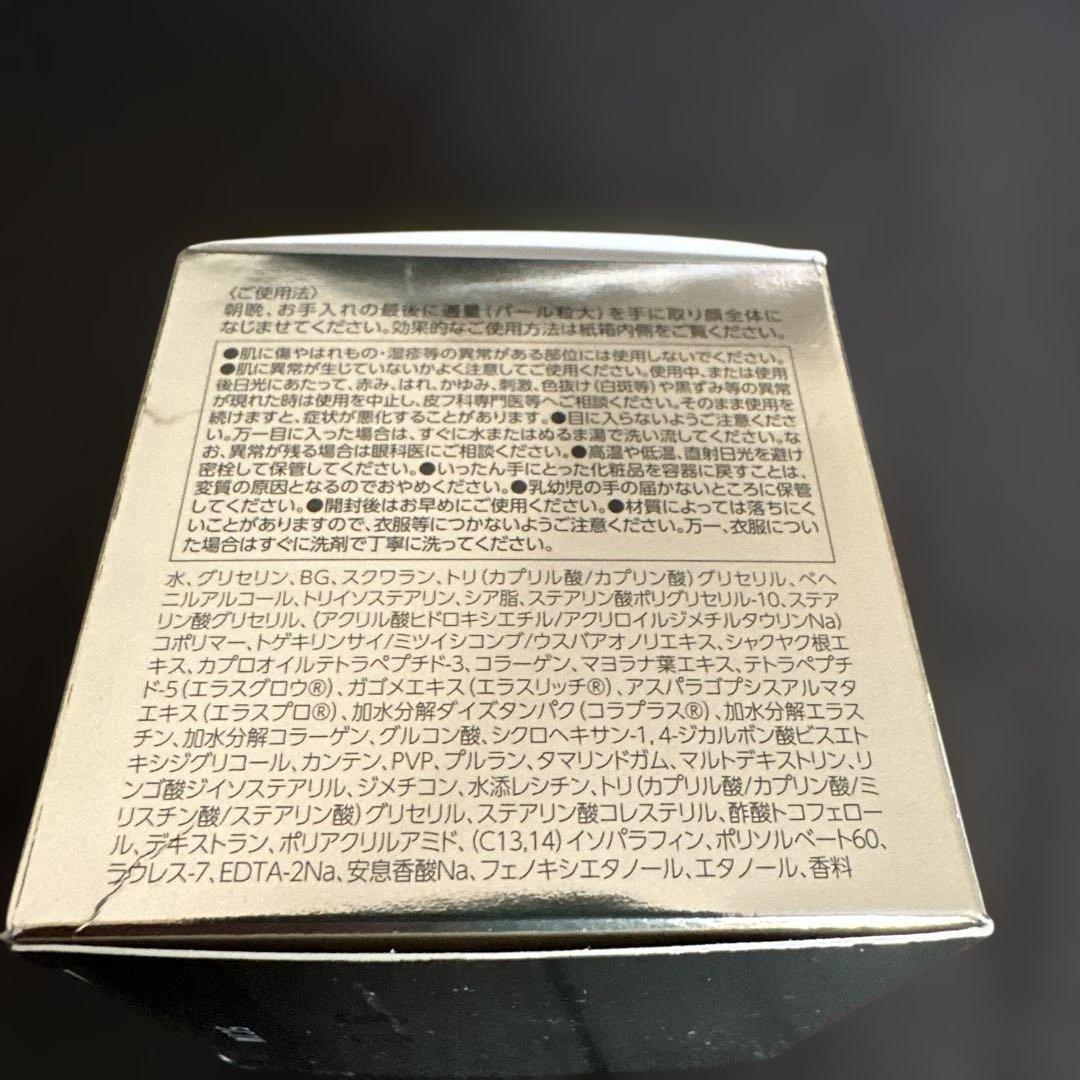 〈ご使用法〉
朝晩、お手入れの最後に適量(パール粒大)を手に取り顔全体に
なじませてください。効果的なご使用方法は紙箱内側をご覧ください。
●肌に傷やはれもの・湿疹等の異常がある部位には使用しないでください。
●肌に異常が生じていないかよく注意してご使用ください。使用中、または使用
後日光にあたって、赤み、はれ、かゆみ、刺激、色抜け(白斑等)や黒ずみ等の異常
が現れた時は使用を中止し、皮フ科専門医等へご相談ください。そのまま使用を
続けますと、症状が悪化することがあります。●目に入らないようご注意くださ
い。万一目に入った場合は、すぐに水またはぬるま湯で洗い流してください。な
お、異常が残る場合は眼科医にご相談ください。●高温や低温、直射日光を避け
密栓して保管してください。●いったん手にとった化粧品を容器に戻すことは、
変質の原因となるのでおやめください。●乳幼児の手の届かないところに保管
してください。●開封後はお早めにご使用ください。●材質によっては落ちにく
いことがありますので、衣服等につかないようご注意ください。万一、衣服につい
た場合はすぐに洗剤で丁寧に洗ってください。
水、グリセリン、BG、スクワラン、トリ(カプリル酸/カプリン酸)グリセリル、ベヘ
ニルアルコール、トリイソステアリン、シア脂、ステアリン酸ポリグリセリル-10、ステア
リン酸グリセリル、(アクリル酸ヒドロキシエチル/アクリロイルジメチルタウリンNa)
コポリマー、トゲキリンサイ/ミツイシコンブ/ウスバアオノリエキス、シャクヤク根エ
キス、カプロオイルテトラペプチド-3、コラーゲン、マヨラナ葉エキス、テトラペプチ
ド-5(エラスグロウ®)、ガゴメエキス(エラスリッチ®)、アスパラゴプシスアルマタ
エキス(エラスプロ®)、加水分解ダイズタンパク(コラプラス®)、加水分解エラス
チン、加水分解コラーゲン、グルコン酸、シクロヘキサン-1,4-ジカルボン酸ビスエト
キシジグリコール、カンテン、PVP、プルラン、タマリンドガム、マルトデキストリン、リ
ンゴ酸ジイソステアリル、ジメチコン、水添レシチン、トリ(カプリル酸/カプリン酸/ミ
リスチン酸/ステアリン酸)グリセリル、ステアリン酸コレステリル、酢酸トコフェロー
ル、デキストラン、ポリアクリルアミド、(C13,14)イソパラフィン、ポリソルベート60、
ラウレス-7、EDTA-2Na、安息香酸Na、フェノキシエタノール、エタノール、香料